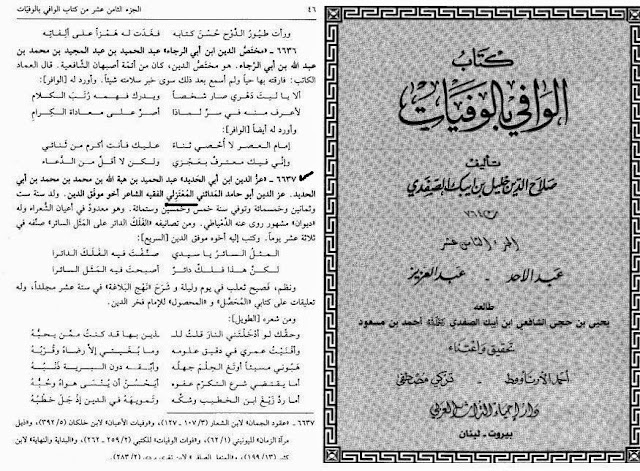 ٤٦
الجزء الثامن عشر من كتاب الوافي بالوفيات
ورأت طيور الدوح حسن كتابه
فغدت له همزاً على ألفاته
٦٦٣٦ - «مختص الدين ابن أبي الرجاء» عبد الحميد بن عبد المجيد بن محمد بن
عبد الله بن أبي الرجاء. هو مختص الدين، كان من أئمة أصبهان الشافعية. قال العماد
الكاتب: فارقته بها حياً ولم أسمع بعد ذلك سوى خبر سلامته شيئاً. وأورد له [الوافر]:
ألا يا ليت دهري صار شخصاً
ويدرك فهمه رتب الكلام
لأعرف منه في سر لماذا
أصر على معاداة الكرام
وأورد له أيضاً [الوافر]:
إمام العصر لا أحصي ثناء
عليك فأنت أكرم من ثنائي
وإني فيك معترف بعجزي
ولكن لا أقل من الدعاء
٦٦٣٧ - «عز الدين ابن أبي الحديد» عبد الحميد بن هبة الله بن محمد بن محمد بن أبي
الحديد. عز الدين أبو حامد المدائني المعتزلي الفقيه الشاعر أخو موفق الدين. ولد سنة ست
وثمانين وخمسمائة وتوفي سنة خمس وخمسين وستمائة. وهو معدود في أعيان الشعراء وله
«ديوان» مشهور روى عنه الدمياطي. ومن تصانيفه «الفلك الدائر على المثل السائر» صنفه في
ثلاثة عشر يوماً. وكتب إليه أخوه موفق الدين [السريع]:
المثل السائر يا سيدي
صنفت فيه الفلك الدائرا
لكن هذا فلك دائر
أصبحت فيه المثل السائرا
ونظم، فصيح ثعلب في يوم وليلة و شرح «نهج البلاغة» في ستة عشر مجلداً، وله
تعليقات على كتابي «المحصل» و«المحصول» للإمام فخر الدين.
ومن شعره [الطويل]:
وحقك لو أدخلتني النار قلت للـ
ـذين بها قد كنت ممن يحبه
وأفنيت عمري في دقيق علومه
وما بغيتي إلا رضاه وقربه
هبوني مسيئاً أوتغ الحلم جهله
وأوبقه دون البرية ذنبه
أما يقتضي شرع التكرم عفوه
أيحسن أن ينسى هواه وحبه
أما رد زيغ ابن الخطيب وشكه
وتمويهه في الدين إذ جل خطبه
٦٦٣٧ - «عقود الجمان» لابن الشعار (٣/ ١٠٧ - ١٢٧)، و«وفيات الأعيان» لابن خلكان (٥/ ٣٩٢)، و«ذيل
مرآة الزمان» لليونيني (١/ ٦٢)، و«فوات الوفيات» للكتبي (٢/ ٢٥٩ - ٢٦٢)، و«البداية والنهاية» لابن
كثير (١٣/ ١٩٩)، (٢/ ٢٨٣).
كتاب
الوافي بالوفيات
تأليف
صلاح الدين خليل بن أيبك الصفدي
ت ٧٦٤ هـ
الجزء الثامن عشر
عبد الاحد - عبد العزيز
طالعه
يحيى بن حجي الشافعي ابن أيبك الصفدي أحمد بن مسعود
تحقيق واعتناء
أحمد الأرناؤوط - تركي مصطفى
دار إحياء التراث العربي
بيروت - لبنان